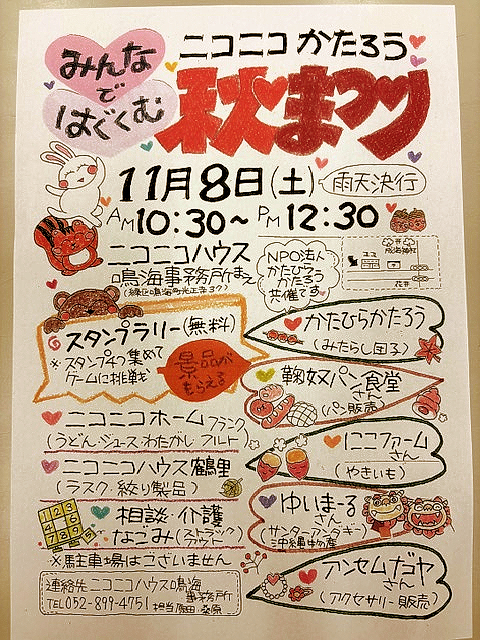 みんな
で
はぐくむ
ニコニコ かたろう
秋まつり
11月8日(土) 雨天決行
AM10:30~PM12:30
ニコニコハウス
鳴海事務所まえ
NPO法人
かたひら
かたろう
共催です
スタンプラリー(無料)
※スタンプ4つ集めて
ゲームに挑戦
景品が
もらえる
かたひらかたろう
(みたらし団子)
鞠奴パン食堂
さん
(パン販売)
ニコニコホーム フランク
(うどん・ジュース・わたがし フルト)
にこファーム
さん
(やきいも)
ニコニコハウス鶴里
(ラスク、絞り製品)
ゆいまーる
さん
(サーターアンダギー)
沖縄物産
相談・介護
なごみ(ストラック
アウト)
※駐車場はございません
アンセムナゴヤ
さん
(アクセサリー販売)
連絡先 ニコニコハウス鳴海
事務所
TEL052-899-4751 担当 桑原